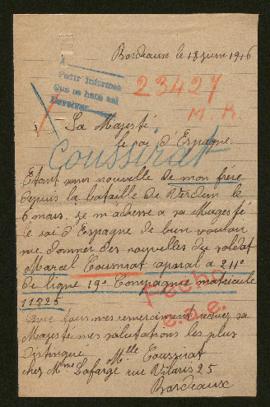 Bordeaux le 18 juin 1916
A
Pedir informes
Que se hace así
23427
M. R
Sa Majesté
le roi d'Espagne
Coussirat
Etant sans nouvelle de mon frère
depuis la bataille de Verdun le
6 mars, je m'adresse a sa Majesté
le roi d'Espagne de bien vouloir
me donner des nouvelles du soldat
Marcel Coussirat caporal a 211e
de ligne 19e Compagnie matricule
11225
Avec tous mes remerciements
Majesté mes salutations les plus
distingué
Mlle Coussirat
chez Mme Lafarge rue Vilaris 25
Bordeaux